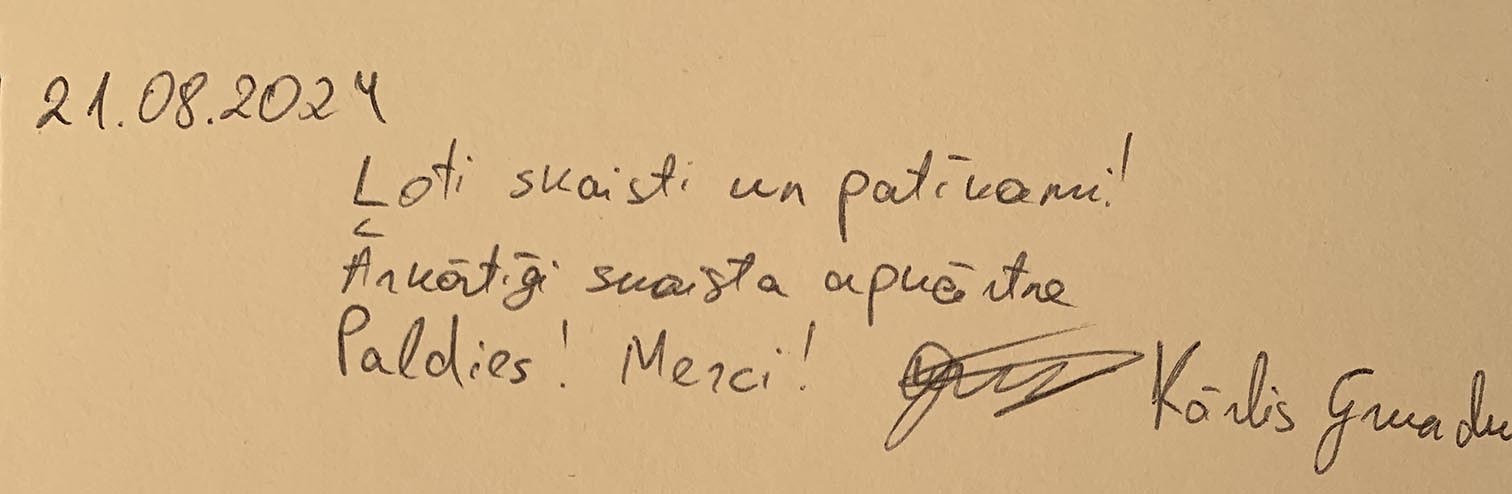 21.08.2024
Ļoti skaisti un patīkami!
Ārkārtīģi skaista apkārtne
Paldies! Merci! Kārlis